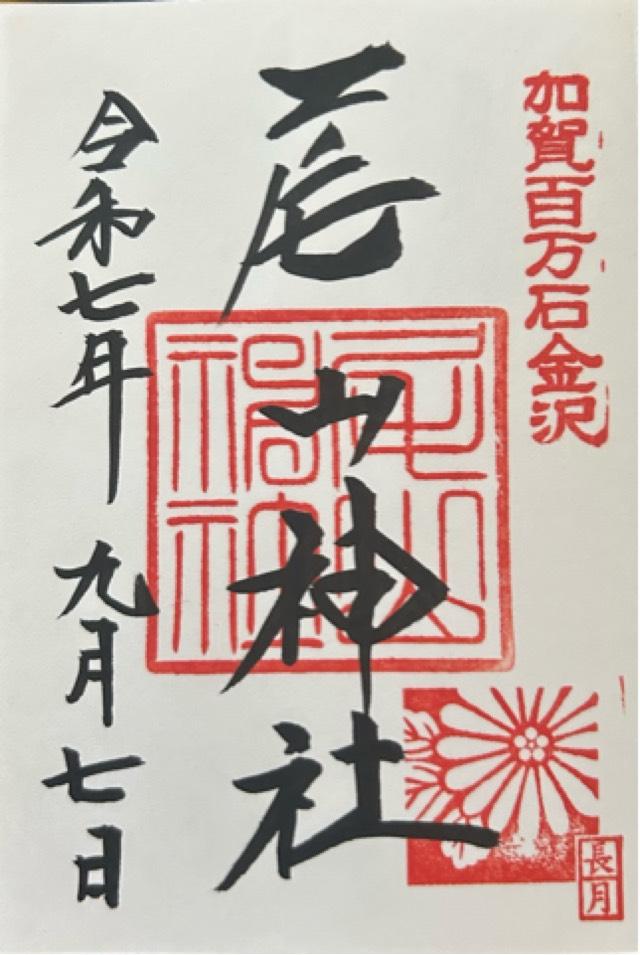 加賀百万石金沢
尾山神社
令和七年 九月七日
長月